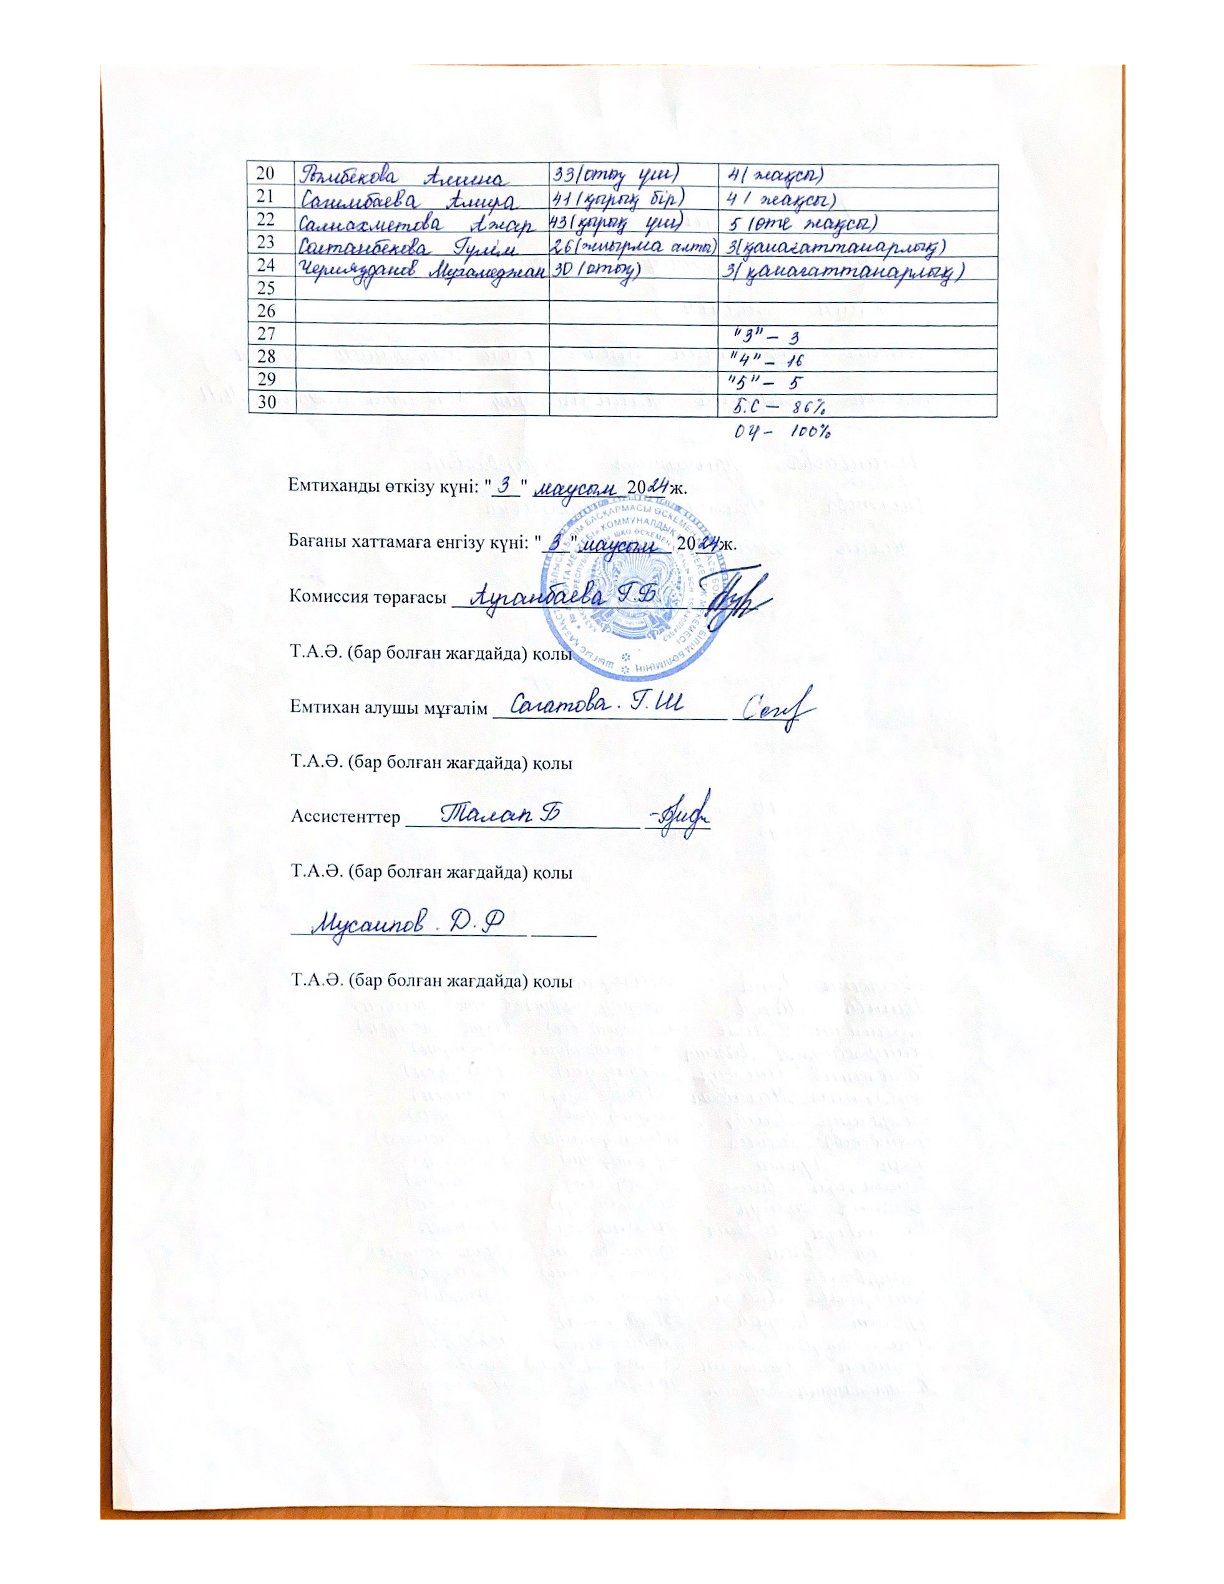 20 Рымбекова Амина 33 (отыз үш) 4 (жақсы)
21 Сагимбаева Амира 41 (қырық бір) 4 (жақсы)
22 Салиахметова Ажар 43 (қырық үш) 5 (өте жақсы)
23 Солтанбекова Гүлім 26 (жиырма алты) 3 (қанағаттанарлық)
24 30 (отыз) 3 (қанағаттанарлық)
25
26
27 "3" – 3
28 "4" – 16
29 "5" – 5
30 Б.С – 86%
ОҮ – 100%
Емтиханды өткізу күні: "3" маусым 2024 ж.
Бағаны хаттамаға енгізу күні: "3" маусым 2024 ж.
Комиссия төрағасы Ауганбаева Г.Б.
Т.А.Ә. (бар болған жағдайда) қолы
Емтихан алушы мұғалім Сагатова. Г.Ш
Т.А.Ә. (бар болған жағдайда) қолы
Ассистенттер Талап Б
Т.А.Ә. (бар болған жағдайда) қолы
Мусаипов. Д.Р
Т.А.Ә. (бар болған жағдайда) қолы